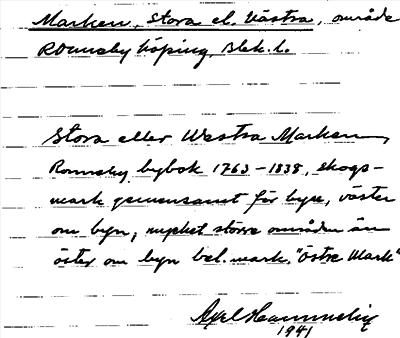 Marken, Stora el. Västra, område
Ronneby köping, Blek. l.
Stora eller Westra Marken,
Ronneby bybok 1763-1838, skogs-
mark gemensamt för byn, väster
om byn; mycket större områden än
öster om byn bel. mark. "Östra Mark"
Axel
1941